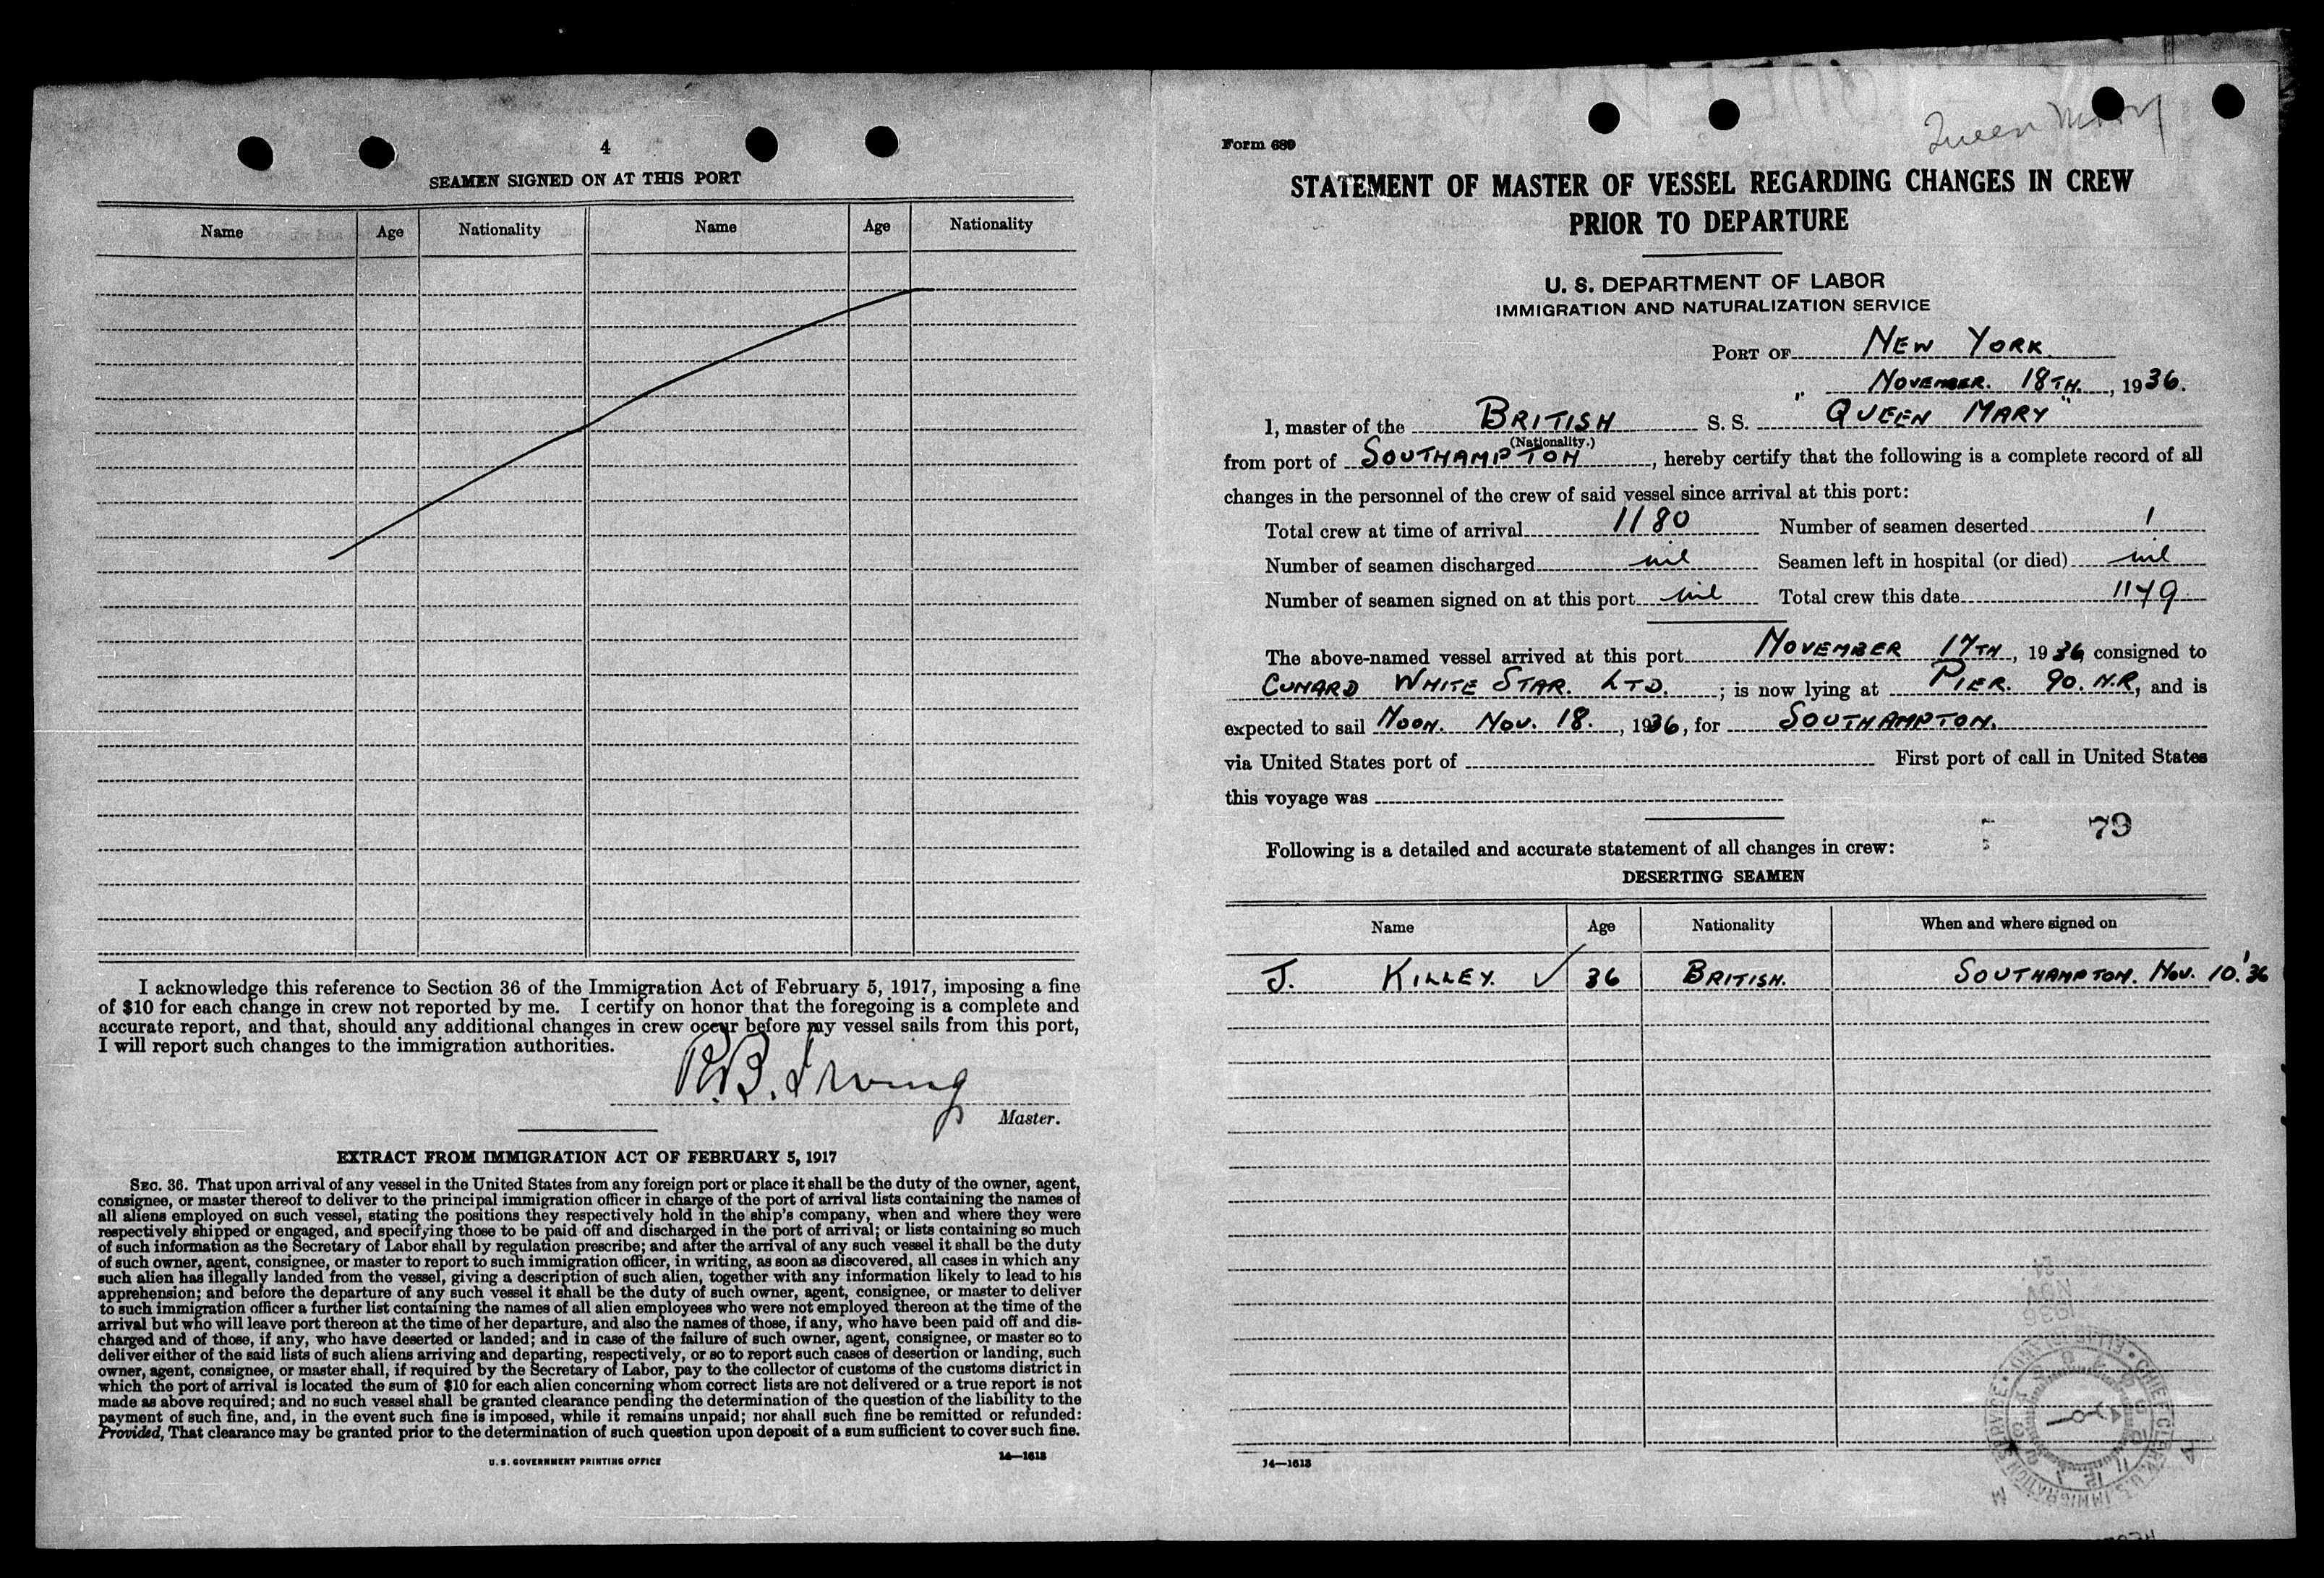 4
SEAMEN SIGNED ON AT THIS PORT
Name Age Nationality Name Age Nationality
I acknowledge this reference to Section 36 of the Immigration Act of February 5, 1917, imposing a fine
of $10 for each change in crew not reported by me. I certify on honor that the foregoing is a complete and
accurate report, and that, should any additional changes in crew occur before my vessel sails from this port,
I will report such changes to the immigration authorities.
R.B. Irving
Master.
EXTRACT FROM IMMIGRATION ACT OF FEBRUARY 5, 1917
SEC. 36. That upon arrival of any vessel in the United States from any foreign port or place it shall be the duty of the owner, agent,
consignee, or master thereof to deliver to the principal immigration officer in charge of the port of arrival lists containing the names of
all aliens employed on such vessel, stating the positions they respectively hold in the ship's company, when and where they were
respectively shipped or engaged, and specifying those to be paid off and discharged in the port of arrival; or lists containing so much
of such information as the Secretary of Labor shall by regulation prescribe; and after the arrival of any such vessel it shall be the duty
of such owner, agent, consignee, or master to report to such immigration officer, in writing, as soon as discovered, all cases in which any
such alien has illegally landed from the vessel, giving a description of such alien, together with any information likely to lead to his
apprehension; and before the departure of any such vessel it shall be the duty of such owner, agent, consignee, or master to deliver
to such immigration officer a further list containing the names of all alien employees who were not employed thereon at the time of the
arrival but who will leave port thereon at the time of her departure, and also the names of those, if any, who have been paid off and dis-
charged and of those, if any, who have deserted or landed; and in case of the failure of such owner, agent, consignee, or master so to
deliver either of the said lists of such aliens arriving and departing, respectively, or so to report such cases of desertion or landing, such
owner, agent, consignee, or master shall, if required by the Secretary of Labor, pay to the collector of customs of the customs district in
which the port of arrival is located the sum of $10 for each alien concerning whom correct lists are not delivered or a true report is not
made as above required; and no such vessel shall be granted clearance pending the determination of the question of the liability to the
payment of such fine, and, in the event such fine is imposed, while it remains unpaid; nor shall such fine be remitted or refunded:
Provided, That clearance may be granted prior to the determination of such question upon deposit of a sum sufficient to cover such fine.
U. S. GOVERNMENT PRINTING OFFICE 14—1613
Queen Mary
Form 689
STATEMENT OF MASTER OF VESSEL REGARDING CHANGES IN CREW
PRIOR TO DEPARTURE
U. S. DEPARTMENT OF LABOR
IMMIGRATION AND NATURALIZATION SERVICE
PORT OF NEW YORK
NOVEMBER. 18TH., 1936.
I, master of the BRITISH S. S. "QUEEN MARY"
(Nationality.)
from port of SOUTHAMPTON, hereby certify that the following is a complete record of all
changes in the personnel of the crew of said vessel since arrival at this port:
Total crew at time of arrival 1180 Number of seamen deserted 1
Number of seamen discharged nil Seamen left in hospital (or died) nil
Number of seamen signed on at this port nil Total crew this date 1179
The above-named vessel arrived at this port NOVEMBER 17TH, 1936, consigned to
CUNARD WHITE STAR. LTD. ; is now lying at PIER. 90. N.R, and is
expected to sail NOON. NOV. 18., 1936, for SOUTHAMPTON.
via United States port of First port of call in United States
this voyage was
79
Following is a detailed and accurate statement of all changes in crew:
DESERTING SEAMEN
Name Age Nationality When and where signed on
J. KILLEY. ✓ 36 BRITISH. SOUTHAMPTON. NOV. 10.'36
14—1613